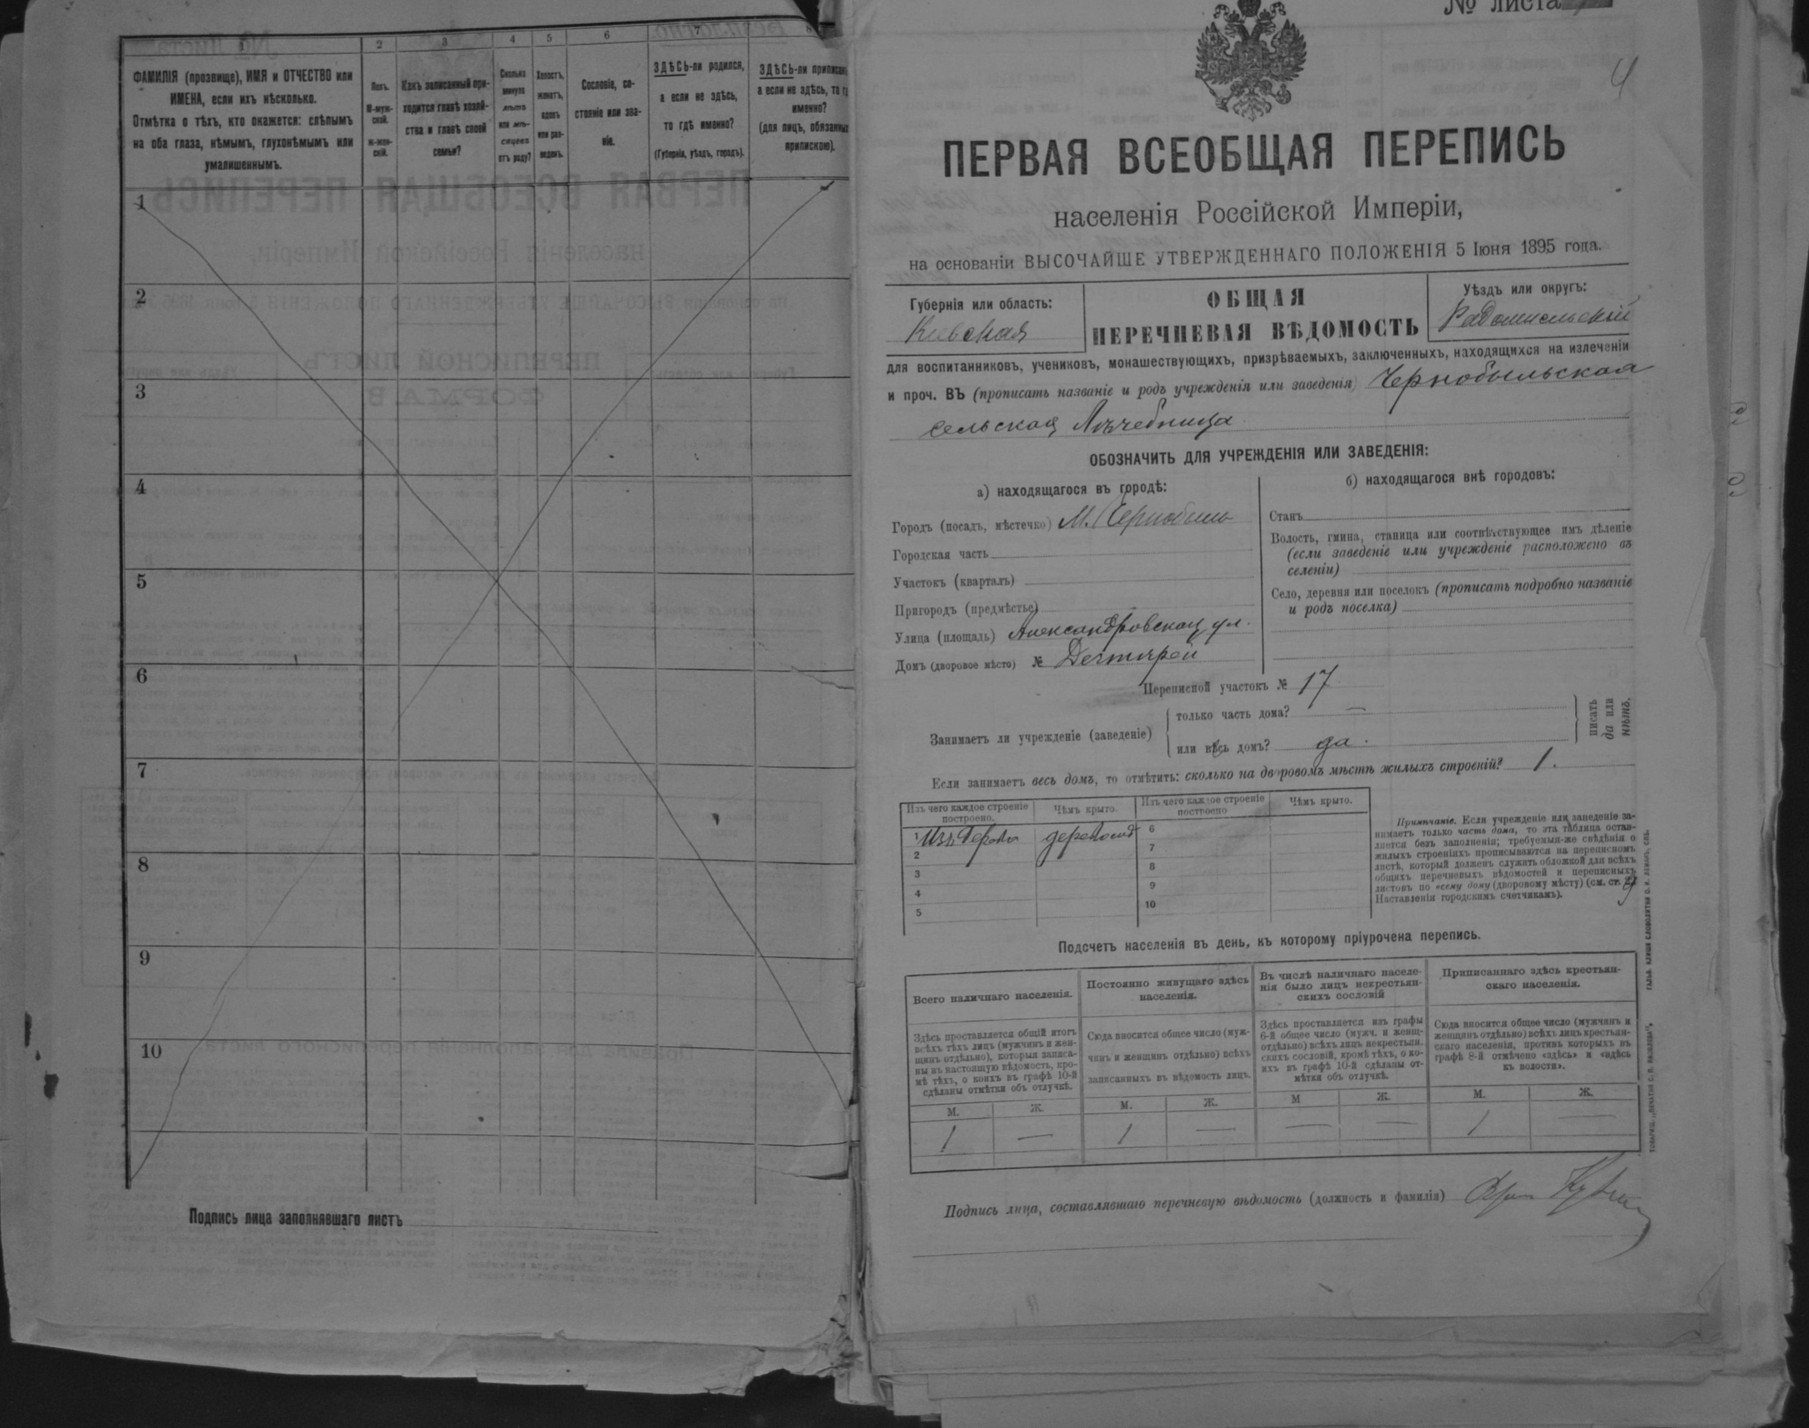 1
2
3
4
5
6
7
8
ФАМИЛІЯ (прозвище), ИМЯ и ОТЧЕСТВО или
ИМЕНА, если ихъ нѣсколько.
Отмѣтка о тѣхъ, кто окажется: слѣпымъ
на оба глаза, нѣмымъ, глухонѣмымъ или
умалишеннымъ.
Полъ.
М-муж-
ской.
ж-жен-
скій.
Какъ записанный при-
ходится главѣ хозяй-
ства и главѣ своей
семьи?
Сколько
минуло
лѣтъ
или мѣ-
сяцевъ
отъ роду?
Холостъ,
женатъ,
вдовъ
или раз-
веденъ.
Сословіе, со-
стояніе или зва-
ніе.
ЗДѢСЬ-ли родился,
а если не здѣсь,
то гдѣ именно?
(Губернія, уѣздъ, городъ).
ЗДѢСЬ-ли приписан
а если не здѣсь, то г
именно?
(для лицъ, обязанны
припискою).
1
2
3
4
5
6
7
8
9
10
Подпись лица заполнявшаго листъ
№ листа
4
ПЕРВАЯ ВСЕОБЩАЯ ПЕРЕПИСЬ
населенія Россійской Имперіи,
на основаніи ВЫСОЧАЙШЕ УТВЕРЖДЕННАГО ПОЛОЖЕНІЯ 5 Іюня 1895 года.
Губернія или область:
Кіевская
ОБЩАЯ
ПЕРЕЧНЕВАЯ ВѢДОМОСТЬ
Уѣздъ или округъ:
Радомысльскій
для воспитанниковъ, учениковъ, монашествующихъ, призрѣваемыхъ, заключенныхъ, находящихся на излеченіи
и проч. ВЪ (прописать названіе и родъ учрежденія или заведенія) Чернобыльская
сельская Лѣчебница
ОБОЗНАЧИТЬ ДЛЯ УЧРЕЖДЕНІЯ ИЛИ ЗАВЕДЕНІЯ:
а) находящагося въ городѣ:
Городъ (посадъ, мѣстечко) М. Чернобыль
Городская часть
Участокъ (кварталъ)
Пригородъ (предмѣстье)
Улица (площадь) Александровская ул.
Домъ (дворовое мѣсто) №
б) находящагося внѣ городовъ:
Станъ
Волость, гмина, станица или соотвѣтствующее имъ дѣленіе
(если заведеніе или учрежденіе расположено въ
селеніи)
Село, деревня или поселокъ (прописать подробно названіе
и родъ поселка)
Переписной участокъ № 17
Занимаетъ ли учрежденіе (заведеніе)
только часть дома? —
или весь домъ? да.
писать
да или
нѣтъ.
Если занимаетъ весь домъ, то отмѣтить: сколько на дворовомъ мѣстѣ жилыхъ строеній? 1.
Изъ чего каждое строеніе
построено.
Чѣмъ крыто.
Изъ чего каждое строеніе
построено
Чѣмъ крыто.
1 Изъ дерева
2
3
4
5
6
7
8
9
10
Примѣчаніе. Если учрежденіе или заведеніе за-
нимаетъ только часть дома, то эта таблица остав-
ляется безъ заполненія; требуемыя-же свѣдѣнія о
жилыхъ строеніяхъ прописываются на переписномъ
листѣ, который долженъ служить обложкой для всѣхъ
общихъ перечневыхъ вѣдомостей и переписныхъ
листовъ по всему дому (дворовому мѣсту) (см. ст.
Наставленія городскимъ счетчикамъ).
Подсчетъ населенія въ день, къ которому пріурочена перепись.
Всего наличнаго населенія.
Постоянно живущаго здѣсь
населенія.
Въ числѣ наличнаго населе-
нія было лицъ некрестьян-
скихъ сословій
Приписаннаго здѣсь крестьян-
скаго населенія.
Здѣсь проставляется общій итогъ
всѣхъ тѣхъ лицъ (мужчинъ и жен-
щинъ отдѣльно), которыя записа-
ны въ настоящую вѣдомость, кро-
мѣ тѣхъ, о коихъ въ графѣ 10-й
сдѣланы отмѣтки объ отлучкѣ.
Сюда вносится общее число (муж-
чинъ и женщинъ отдѣльно) всѣхъ
записанныхъ въ вѣдомость лицъ.
Здѣсь проставляется изъ графы
6-й общее число (мужч. и женщ.
отдѣльно) всѣхъ лицъ некрестьян-
скихъ сословій, кромѣ тѣхъ, о ко-
ихъ въ графѣ 10-й сдѣланы от-
мѣтки объ отлучкѣ.
Сюда вносится общее число (мужчинъ и
женщинъ отдѣльно) всѣхъ лицъ крестьян-
скаго населенія, противъ которыхъ въ
графѣ 8-й отмѣчено «здѣсь» и «здѣсь
въ волости».
М. Ж. М. Ж. М Ж. М. Ж.
1 — 1 — — — 1 —
Подпись лица, составлявшаго перечневую вѣдомость (должность и фамилія)